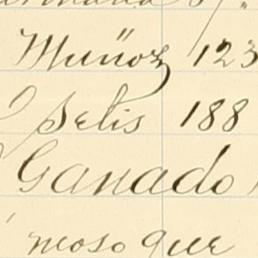 Muñoz 123
Selis 188
Ganado
moso que